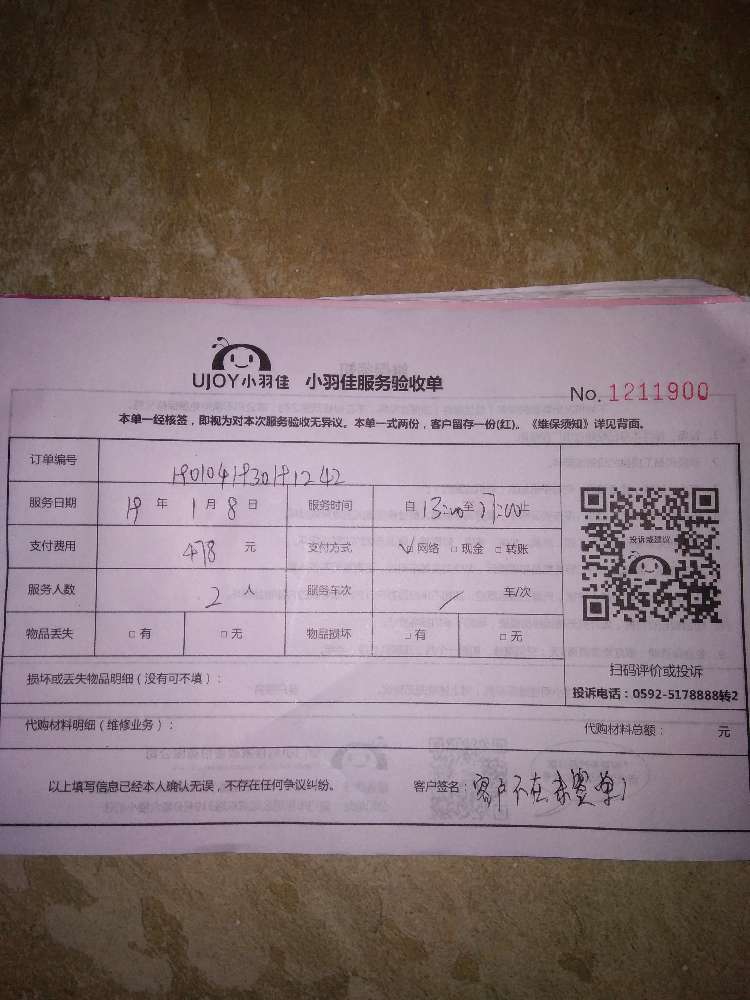 UJOY小羽佳 小羽佳服务验收单
No. 1211900
本单一经核签，即视为对本次服务验收无异议。本单一式两份，客户留存一份(红)。《维保须知》详见背面。
订单编号
服务日期 19 年 1 月 8 日 服务时间 自 13:00 至 17:00 止
支付费用 478 元 支付方式 ☑网络 □现金 □转账
服务人数 2 人 服务车次 / 车/次
物品丢失 □有 □无 物品损坏 □有 □无
投诉或建议
扫码评价或投诉
投诉电话：0592-5178888转2
损坏或丢失物品明细（没有可不填）：
代购材料明细（维修业务）： 代购材料总额： 元
以上填写信息已经本人确认无误，不存在任何争议纠纷。 客户签名：客户不在未签单